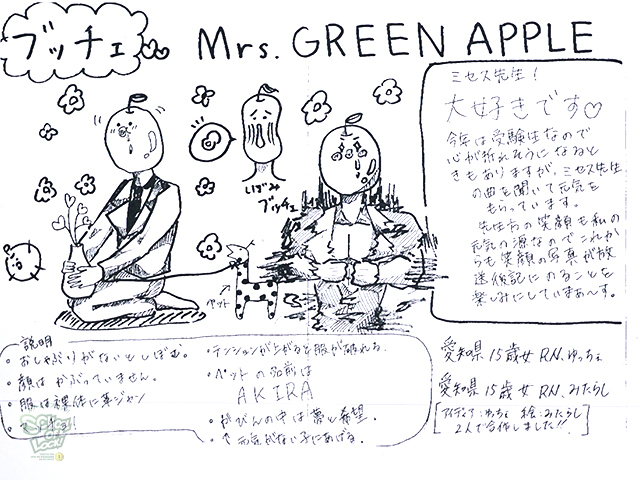 ブッチェ
Mrs. GREEN APPLE
ミセス先生！
大好きです♡
今年は受験生なので
心が折れそうになると
きもありますが、ミセス先生
の曲を聞いて元気を
もらっています。
先生方の笑顔も私の
元気の源なのでこれか
らも笑顔の写真が放
送後記にのることを
楽しみにしていまぁ〜す。
いがみ
ブッチェ
ペット
説明
・おしゃぶりがないとしぼむ。
・顔はかぶっていません。
・服は裸体に革ジャン
・テンションが上がると服が破れる。
・ペットの名前は
AKIRA
・かびんの中は夢と希望。
・↑元気がない子にあげる。
愛知県 15歳 女 RN、ゆっちぇ
愛知県 15歳 女 RN、みたらし
[アイディア：ゆっちぇ 絵：みたらし
2人で合作しました!!]